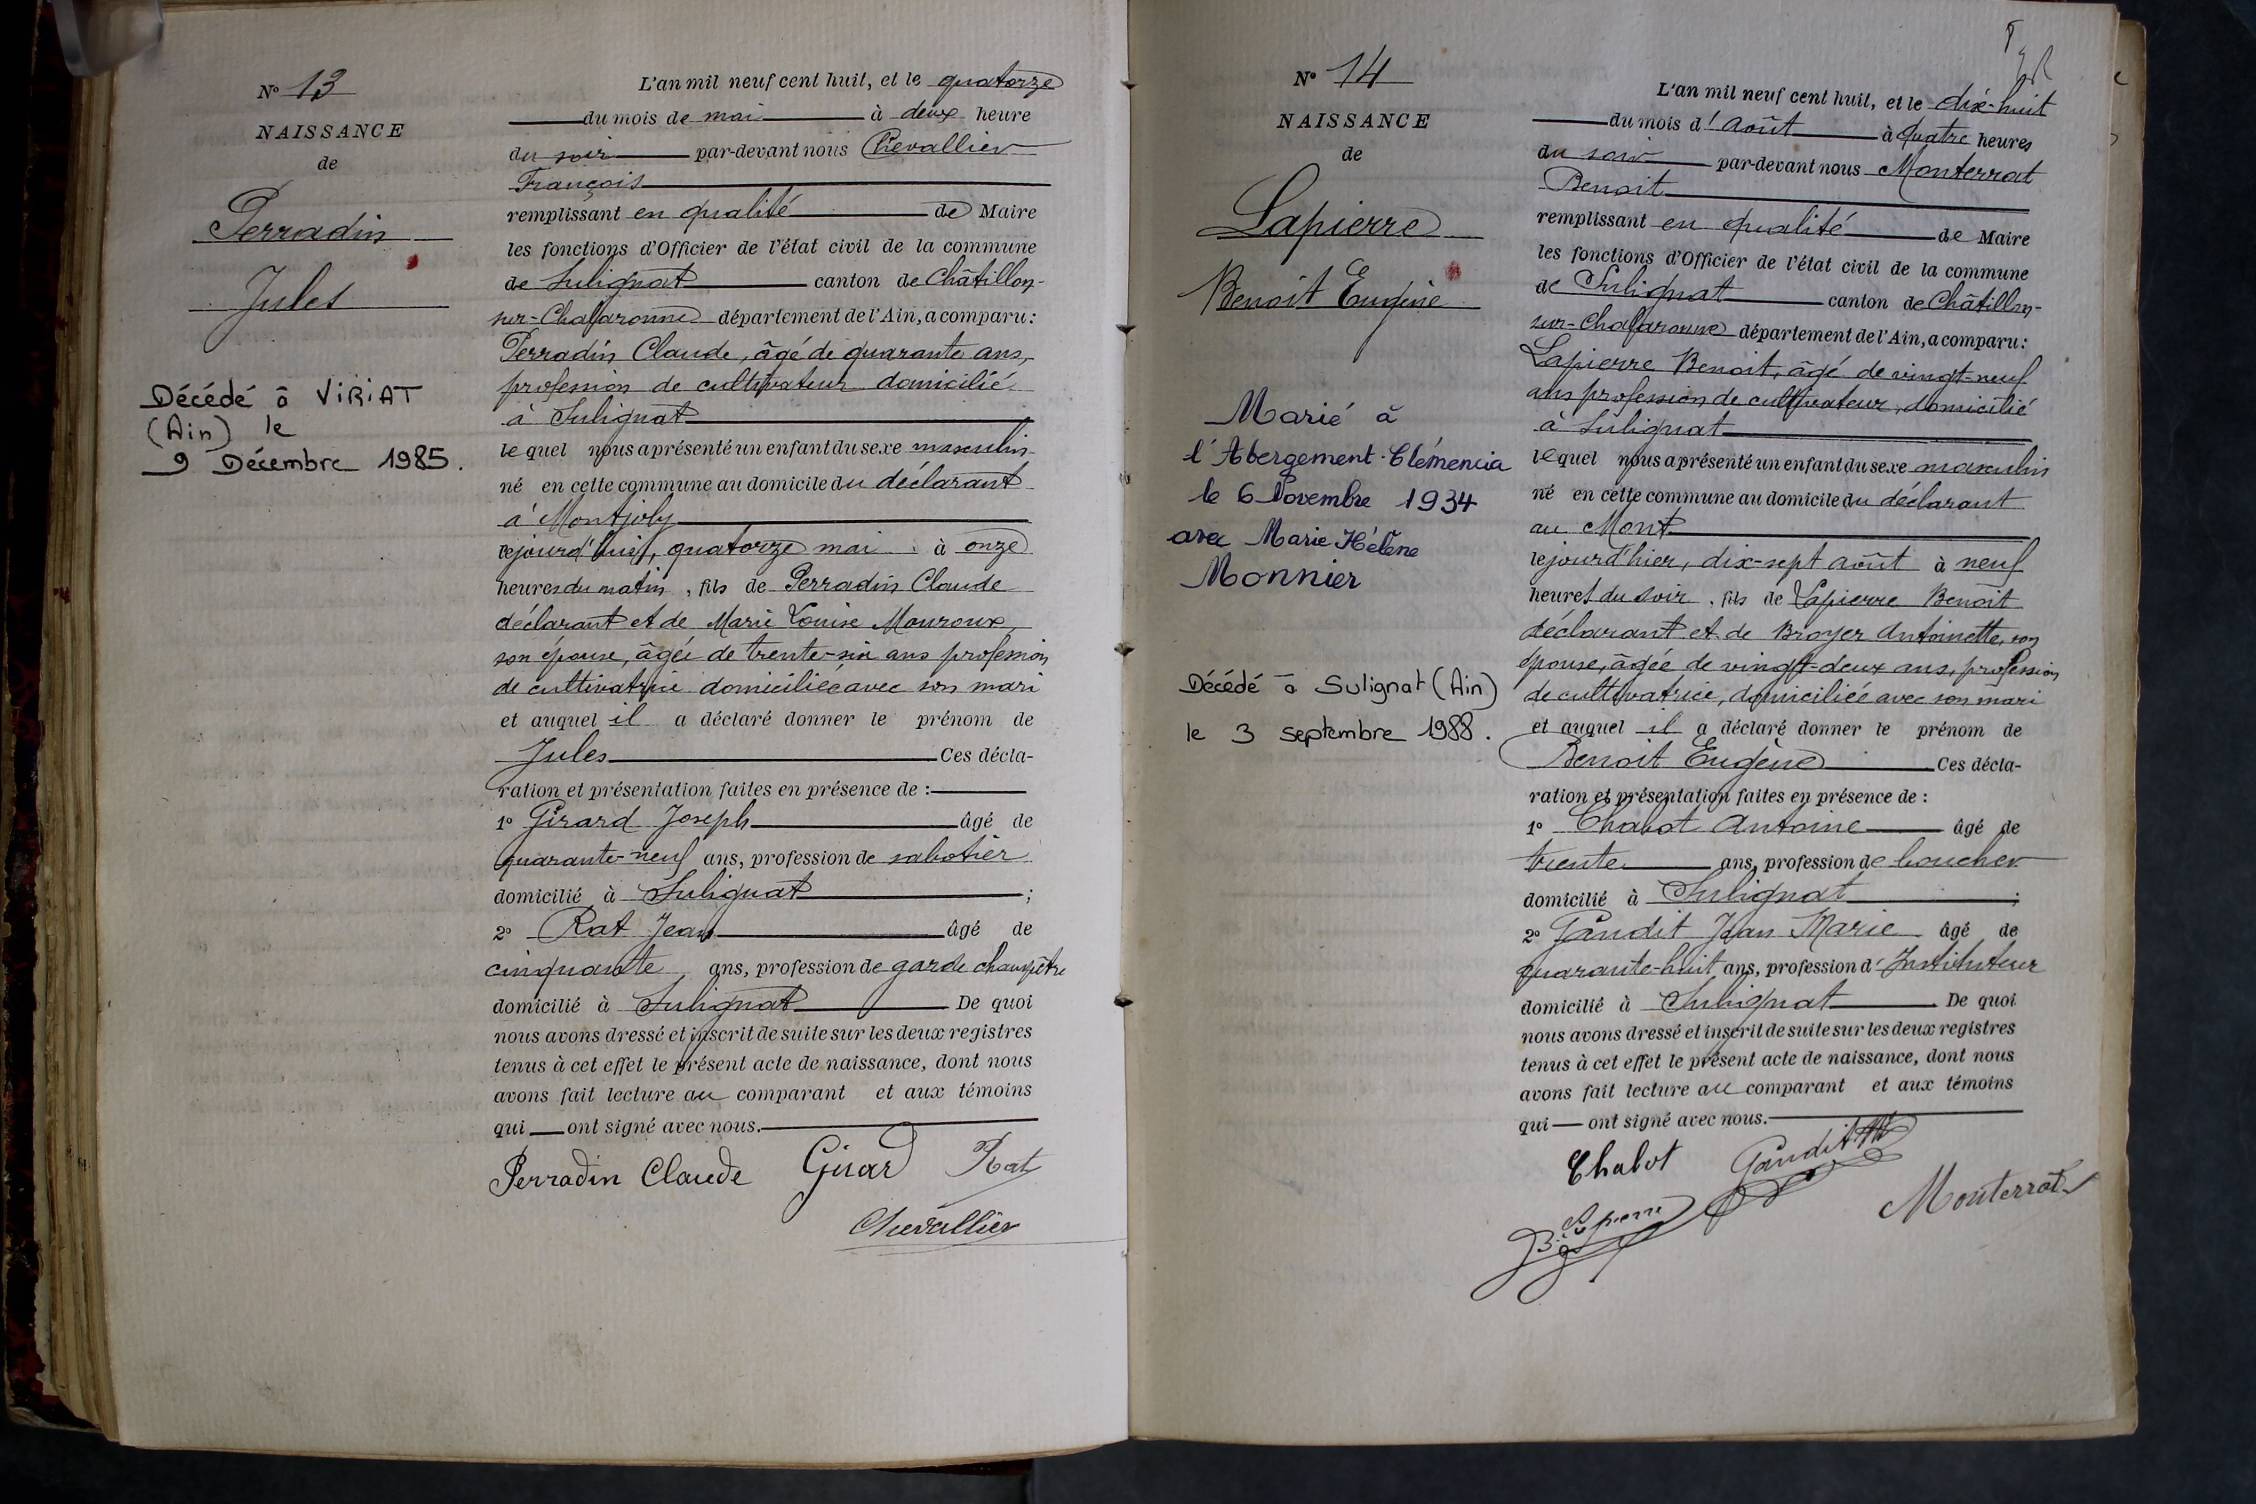 N° 13
NAISSANCE
de
Perradin
Jules
Décédé à VIRIAT
(Ain) le
9 Décembre 1985.
L'an mil neuf cent huit, et le quatorze
du mois de mai à deux heure
du soir par-devant nous Chevallier
François
remplissant en qualité de Maire
les fonctions d'Officier de l'état civil de la commune
de Sulignat canton de Châtillon-
sur-Chalaronne département de l'Ain, a comparu:
Perradin Claude, âgé de quarante ans,
profession de cultivateur domicilié
à Sulignat
lequel nous a présenté un enfant du sexe masculin
né en cette commune au domicile du déclarant
à Montjoly
cejourd'hui, quatorze mai à onze
heures du matin, fils de Perradin Claude
déclarant et de Marie Louise Mouroux,
son épouse, âgée de trente-six ans profession
de cultivatrice domiciliée avec son mari
et auquel il a déclaré donner le prénom de
Jules Ces décla-
ration et présentation faites en présence de :
1° Girard Joseph âgé de
quarante-neuf ans, profession de sabotier
domicilié à Sulignat ;
2° Rat Jean âgé de
cinquante ans, profession de garde champêtre
domicilié à Sulignat De quoi
nous avons dressé et inscrit de suite sur les deux registres
tenus à cet effet le présent acte de naissance, dont nous
avons fait lecture au comparant et aux témoins
qui ont signé avec nous.
Perradin Claude Girard Rat
Chevallier
N° 14
NAISSANCE
de
Lapierre
Benoit Eugène
Marié à
l'Abergement-Clémencia
le 6 Novembre 1934
avec Marie Hélène
Monnier
Décédé à Sulignat (Ain)
le 3 septembre 1988.
L'an mil neuf cent huit, et le dix-huit
du mois d'août à quatre heures
du soir par-devant nous Monterrat
Benoit
remplissant en qualité de Maire
les fonctions d'Officier de l'état civil de la commune
de Sulignat canton de Châtillon-
sur-Chalaronne département de l'Ain, a comparu:
Lapierre Benoit, âgé de vingt-neuf
ans profession de cultivateur, domicilié
à Sulignat
lequel nous a présenté un enfant du sexe masculin
né en cette commune au domicile du déclarant
au Mont
lejourd'hier, dix-sept août à neuf
heures du soir, fils de Lapierre Benoit
déclarant et de Broyer Antoinette, son
épouse, âgée de vingt-deux ans, profession
de cultivatrice, domiciliée avec son mari
et auquel il a déclaré donner le prénom de
Benoit Eugène Ces décla-
ration et présentation faites en présence de :
1° Chabot Antoine âgé de
trente ans, profession de boucher
domicilié à Sulignat ;
2° Gaudit Jean Marie âgé de
quarante-huit ans, profession d'Instituteur
domicilié à Sulignat De quoi
nous avons dressé et inscrit de suite sur les deux registres
tenus à cet effet le présent acte de naissance, dont nous
avons fait lecture au comparant et aux témoins
qui ont signé avec nous.
Chabot Gaudit
B. Lapierre Monterrat